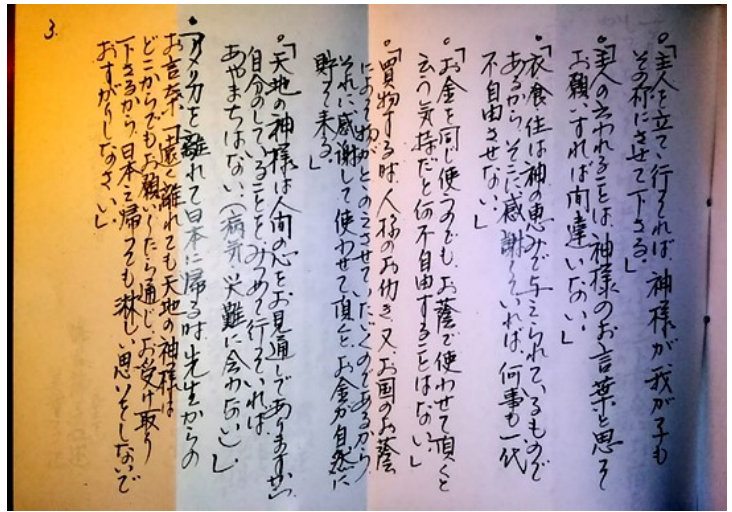 。「主人を立てゝ行それば、神様が我が子も
その様にさせて下さる」
。「主人の云われることは、神様のお言葉と思って
お願いすれば間違いない」
。「衣食住は神の恵みで与えられているもので
あるから、そこに感謝していれば、何事も一代
不自由させない」
。「お金を同じ使うのでも、お蔭で使わせて頂くと
云う気持だと何不自由することはない」
。「買物する時、人様のお働き又、お国のお蔭
によって物がとゝのえさせていたゞくのであるから、
それに感謝して使わせて頂くと、お金が自然に
貯って来る」
。「天地の神様は人間の心をお見通しでありますから、
自分のしていることを、みつめて行っていれば
あやまちはない、(病気、災難に会わない)」
。「アメリカを離れて日本に帰る時、先生からの
お言葉「遠く離れても天地の神様は
どこからでもお願いしたら通じ、お受け取り
下さるから、日本え帰っても淋しい思いをしないで
おすがりしなさい」
3.